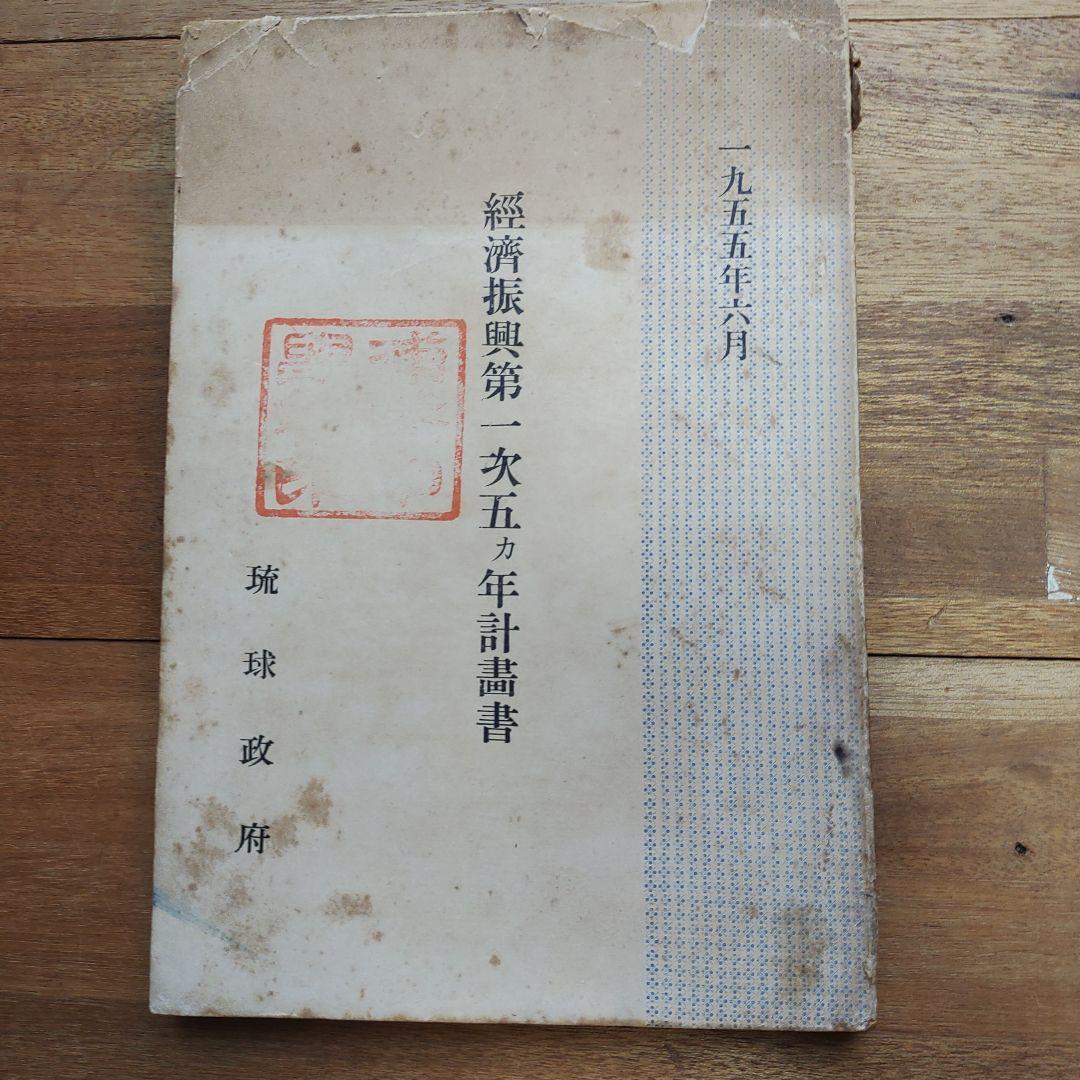 一九五五年六月
經濟振興第一次五カ年計畫書
琉球政府